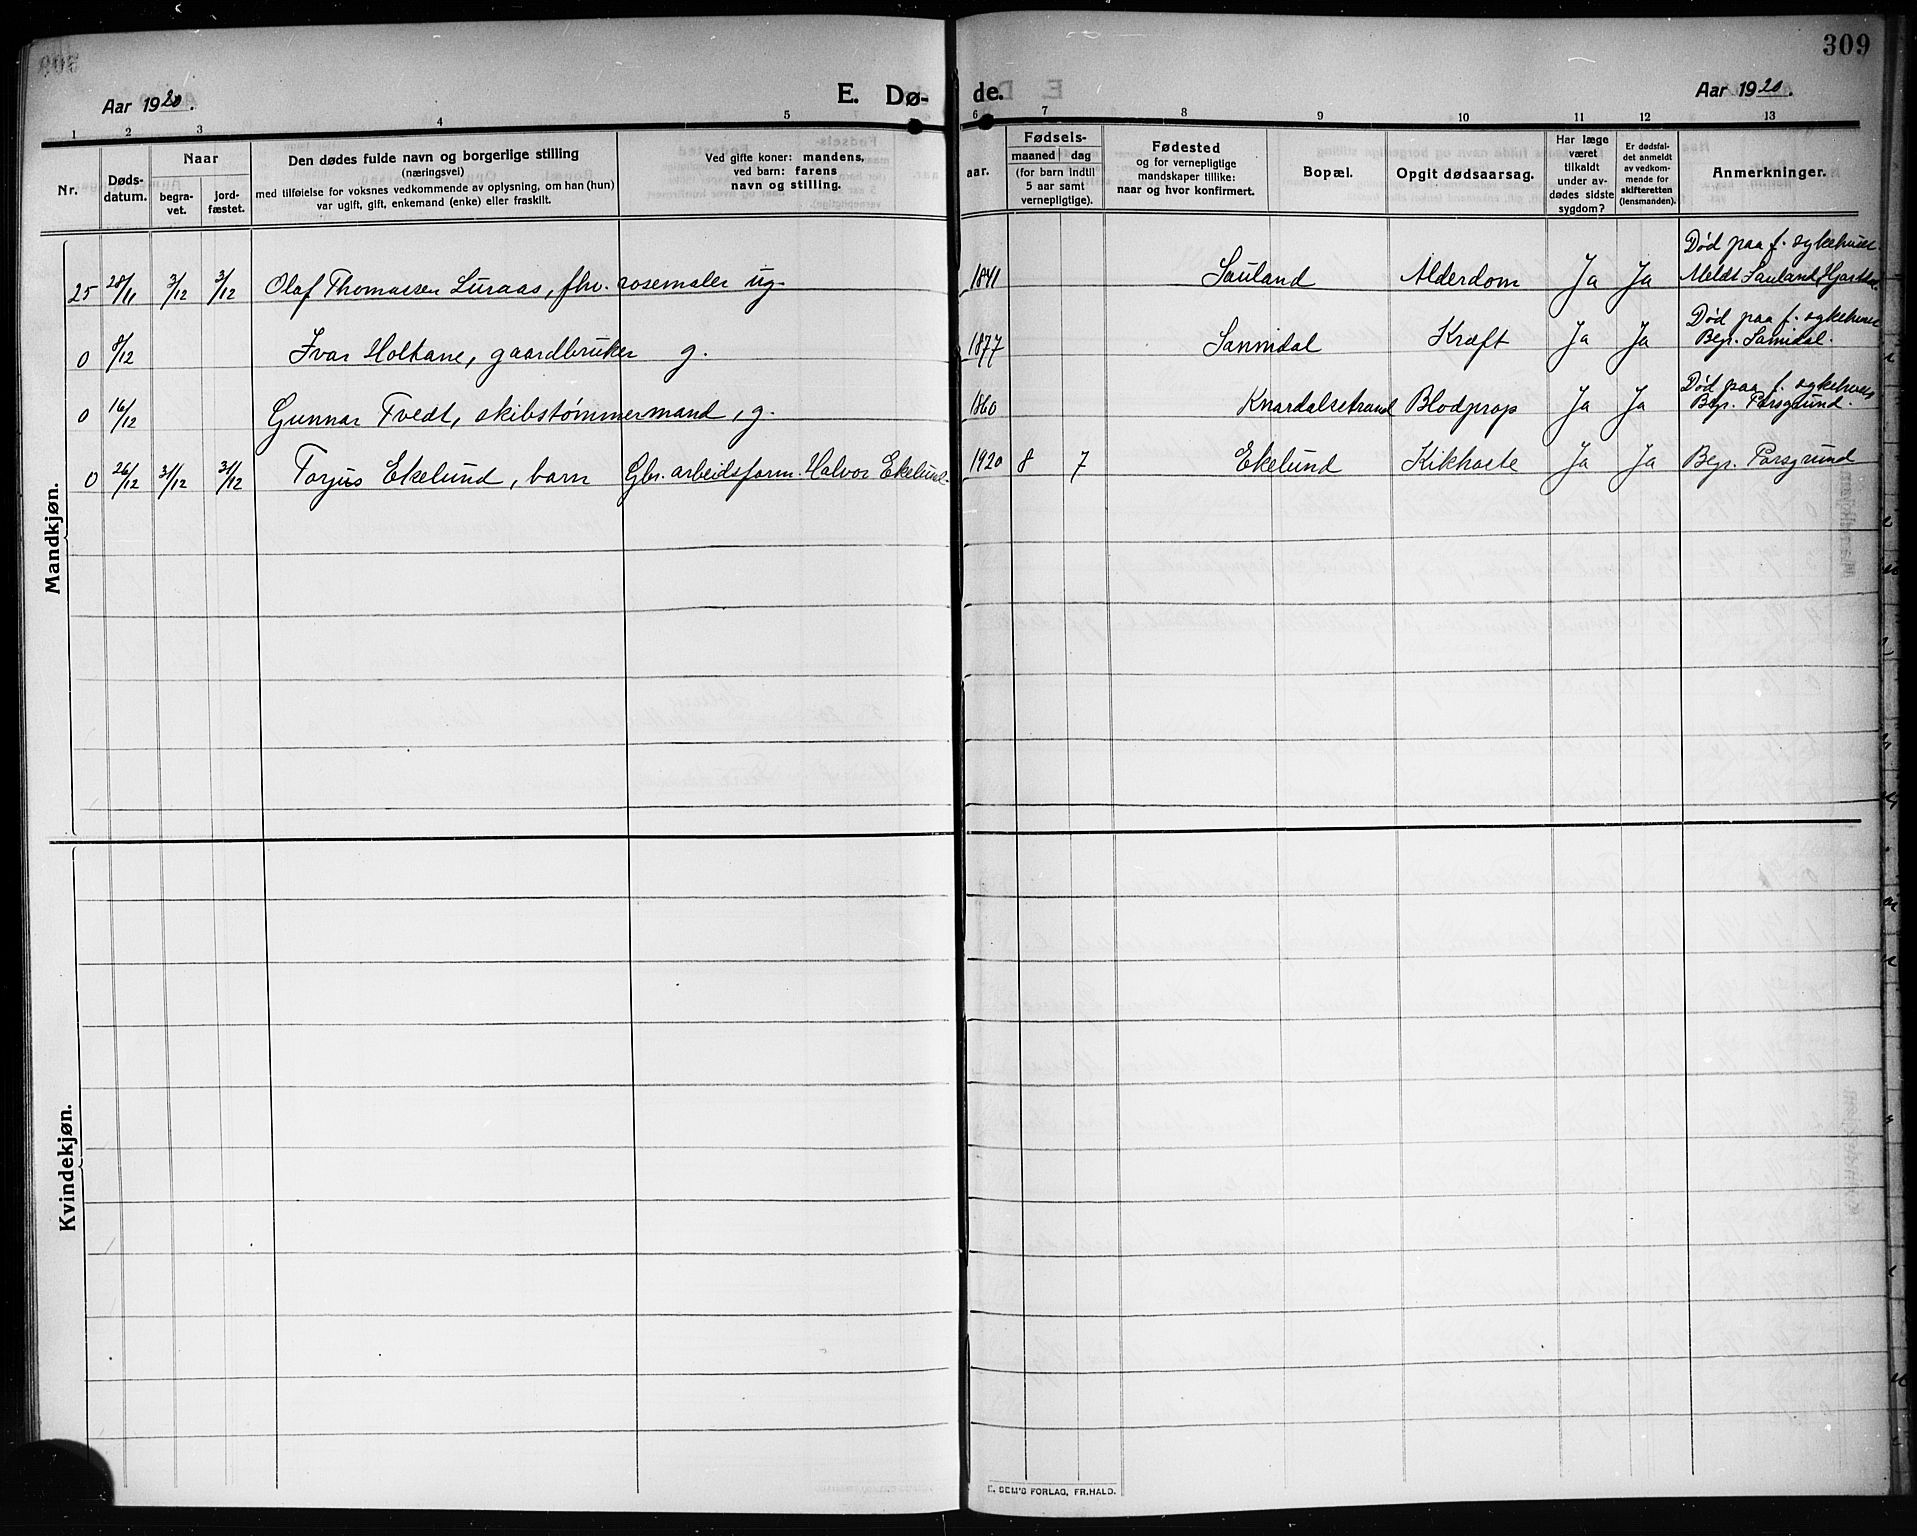 309
Aar 1920.
E. Dø-
de.
Aar 1920.
1 2 3 4 5 6 7 8 9 10 11 12 13
Nr.
Døds-
datum.
Naar
begra-
vet.
jord-
fæstet.
Den dødes fulde navn og borgerlige stilling
(næringsvei)
med tilføielse for voksnes vedkommende av oplysning, om han (hun)
var ugift, gift, enkemand (enke) eller fraskilt.
Ved gifte koner: mandens,
ved barn: farens
navn og stilling.
aar.
Fødsels-
maaned dag
(for barn indtil
5 aar samt
vernepligtige).
Fødested
og for vernepligtige
mandskaper tillike:
naar og hvor konfirmert.
Bopæl.
Opgit dødsaarsag.
Har læge
været
tilkaldt
under av-
dødes sidste
sygdom?
Er dødsfal-
det anmeldt
av vedkom-
mende for
skifteretten
(lensmanden).
Anmerkninger.
Mandkjøn.
Død paa f. sykehuset.
25 28/11 3/12 3/12 Olaf Thomassen Luraas, fhv. rosemaler ug. 1841 Sauland Alderdom Ja Ja Meldt Sauland, Hjartdal.
Død paa f. sykehuset
0 8/12 Ivar Holtane, gaardbruker g. 1877 Sannidal Kræft Ja Ja Begr. Sannidal.
Død paa f. sykehuset
0 16/12 Gunnar Tvedt, skibstømmermand, g. 1860 Knardalsstrand Blodprop Ja Ja Begr. Porsgrund.
0 26/12 31/12 31/12 Torjus Ekelund, barn Gbr. arbeidsform. Halvor Ekelund. 1920 8 7 Ekelund Kikhoste Ja Ja Begr. Porsgrund
Kvindekjøn.
E. SEM'S FORLAG, FR.HALD.